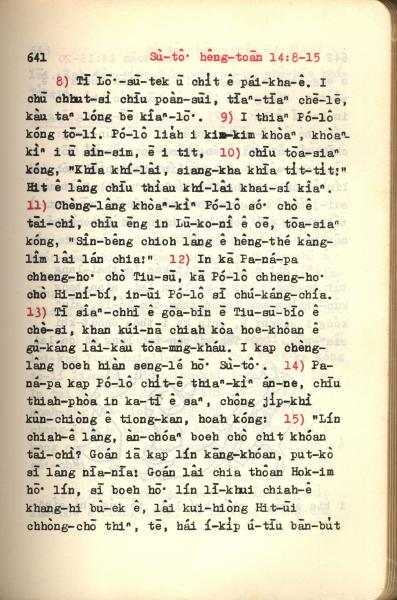 641 Sù-tô͘ hêng-toān 14:8-15
8) Tī Lō͘-sū-tek ū chi̍t ê pái-kha-ê. I
chū chhut-sì chīu poàn-sūi, tīaⁿ-tīaⁿ chē-lē,
kàu taⁿ lóng bē kîaⁿ-lō͘. 9) I thiaⁿ Pó-lô
kóng tō-lí. Pó-lô lia̍h i kim-kim khòaⁿ, khòaⁿ-
kìⁿ i ū sìn-sim, ē i tit, 10) chīu tōa-siaⁿ
kóng, "Khīa khí-lâi, siang-kha khīa ti̍t-ti̍t!"
Hit ê lâng chīu thiàu khí-lâi khai-sí kîaⁿ.
11) Chèng-lâng khòaⁿ-kìⁿ Pó-lô só͘ chò ê
tāi-chì, chīu ēng in Lū-ko-nî ê oē, tōa-siaⁿ
kóng, "Sîn-bêng chioh lâng ê hêng-thé kàng-
lîm lâi lán chia!" 12) In kā Pa-ná-pa
chheng-ho͘ chò Tiu-sū, kā Pó-lô chheng-ho͘
chò Hi-ní-bí, in-ūi Pó-lô sī chú-káng-chía.
13) Tī siâⁿ-chhī ê gōa-bīn ê Tiu-sū-bīo ê
chè-si, khan kúi-nā chiah kòa hoe-khôan ê
gû-káng lâi-kàu tōa-mn̂g-kháu. I kap chèng-
lâng boeh hiàn seng-lé hō͘ Sù-tô͘. 14) Pa-
ná-pa kap Pó-lô chi̍t-ē thiaⁿ-kìⁿ án-ne, chīu
thiah-phòa in ka-tī ê saⁿ, chòng ji̍p-khì
kûn-chiòng ê tiong-kan, hoah kóng: 15) "Lín
chiah-ê lâng, àn-chóaⁿ boeh chò chit khóan
tāi-chì? Goán iā kap lín kāng-khóan, put-kò
sī lâng nīa-nīa! Goán lâi chia thòan Hok-im
hō͘ lín, sī boeh hō͘ lín lī-khui chiah-ê
khang-hi bû-ek ê, lâi kui-hiòng Hit-ūi
chhòng-chō thiⁿ, tē, hái í-ki̍p ú-tīu bān-bu̍t